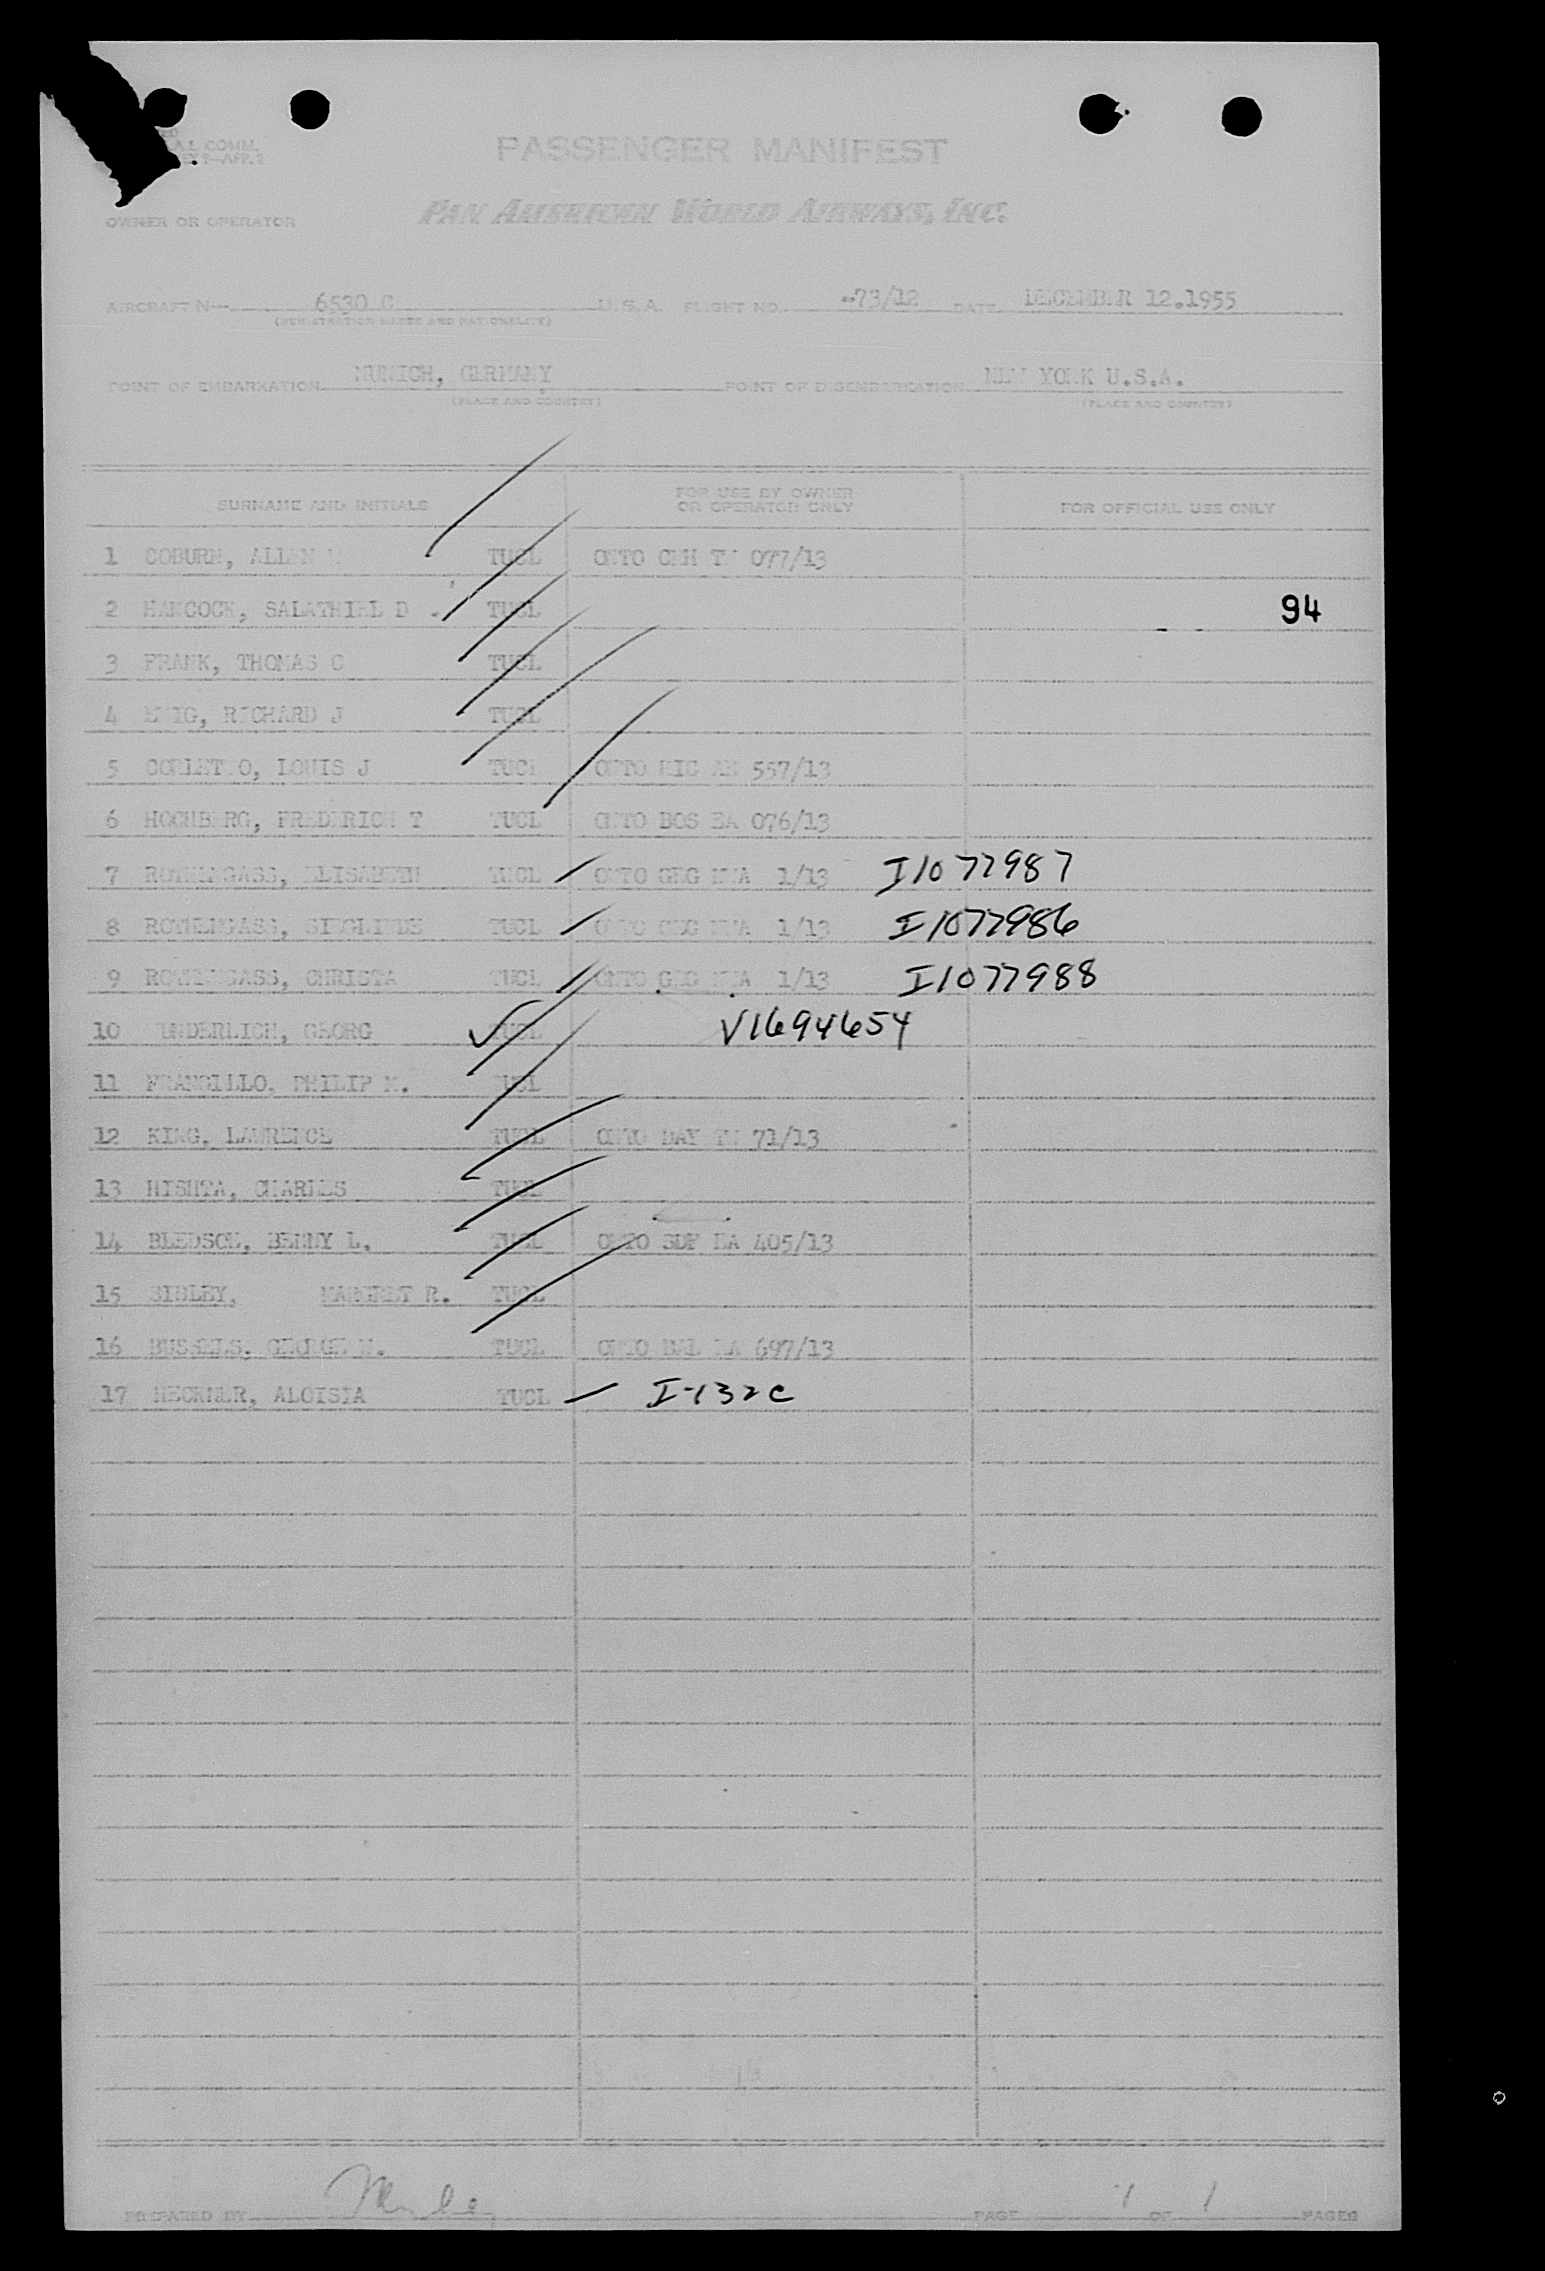 A.L COMM.
PASSENGER MANIFEST
OWNER OR OPERATOR
PAN AMERICAN WORLD AIRWAYS, INC.
AIRCRAFT N— 6530 C U.S.A. FLIGHT NO. 73/12 DATE DECEMBER 12.1955
(REGISTRATION MARKS AND NATIONALITY)
POINT OF EMBARKATION MUNICH, GERMANY POINT OF DISEMBARKATION NEW YORK U.S.A.
(PLACE AND COUNTRY) (PLACE AND COUNTRY)
SURNAME AND INITIALS FOR USE BY OWNER OR OPERATOR ONLY FOR OFFICIAL USE ONLY
1 COBURN, ALLEN TUCL ONTO 077/13
2 HANCOCK, SALATHIEL D TUCL 94
3 FRANK, THOMAS C TUCL
4 RICHARD J TUCL
5 LOUIS J TUCL ONTO 557/13
6 HOCHBERG, FREDERICH T TUCL ONTO BOS EA 076/13
7 ROTHENGASS, ELISABETH TUCL ONTO GEG NWA 1/13 I1077987
8 ROTHENGASS, SIEGLINDE TUCL ONTO GEG NWA 1/13 I1077986
9 ROTHENGASS, CHRISTA TUCL ONTO GEG NWA 1/13 I1077988
10 WUNDERLICH, GEORG TUCL V1694654
11 PHILIP M. TUCL
12 KING, LAWRENCE TUCL ONTO DAY TW 71/13
13 HISHTA, CHARLES TUCL
14 BLEDSOE, BENNY L. TUCL ONTO SDF EA 405/13
15 SIBLEY, MARGRET R. TUCL
16 BUSSELS, GEORGE TUCL ONTO BAL EA 697/13
17 HECKNER, ALOISIA TUCL I-132C
PREPARED BY PAGE 1 OF 1 PAGES